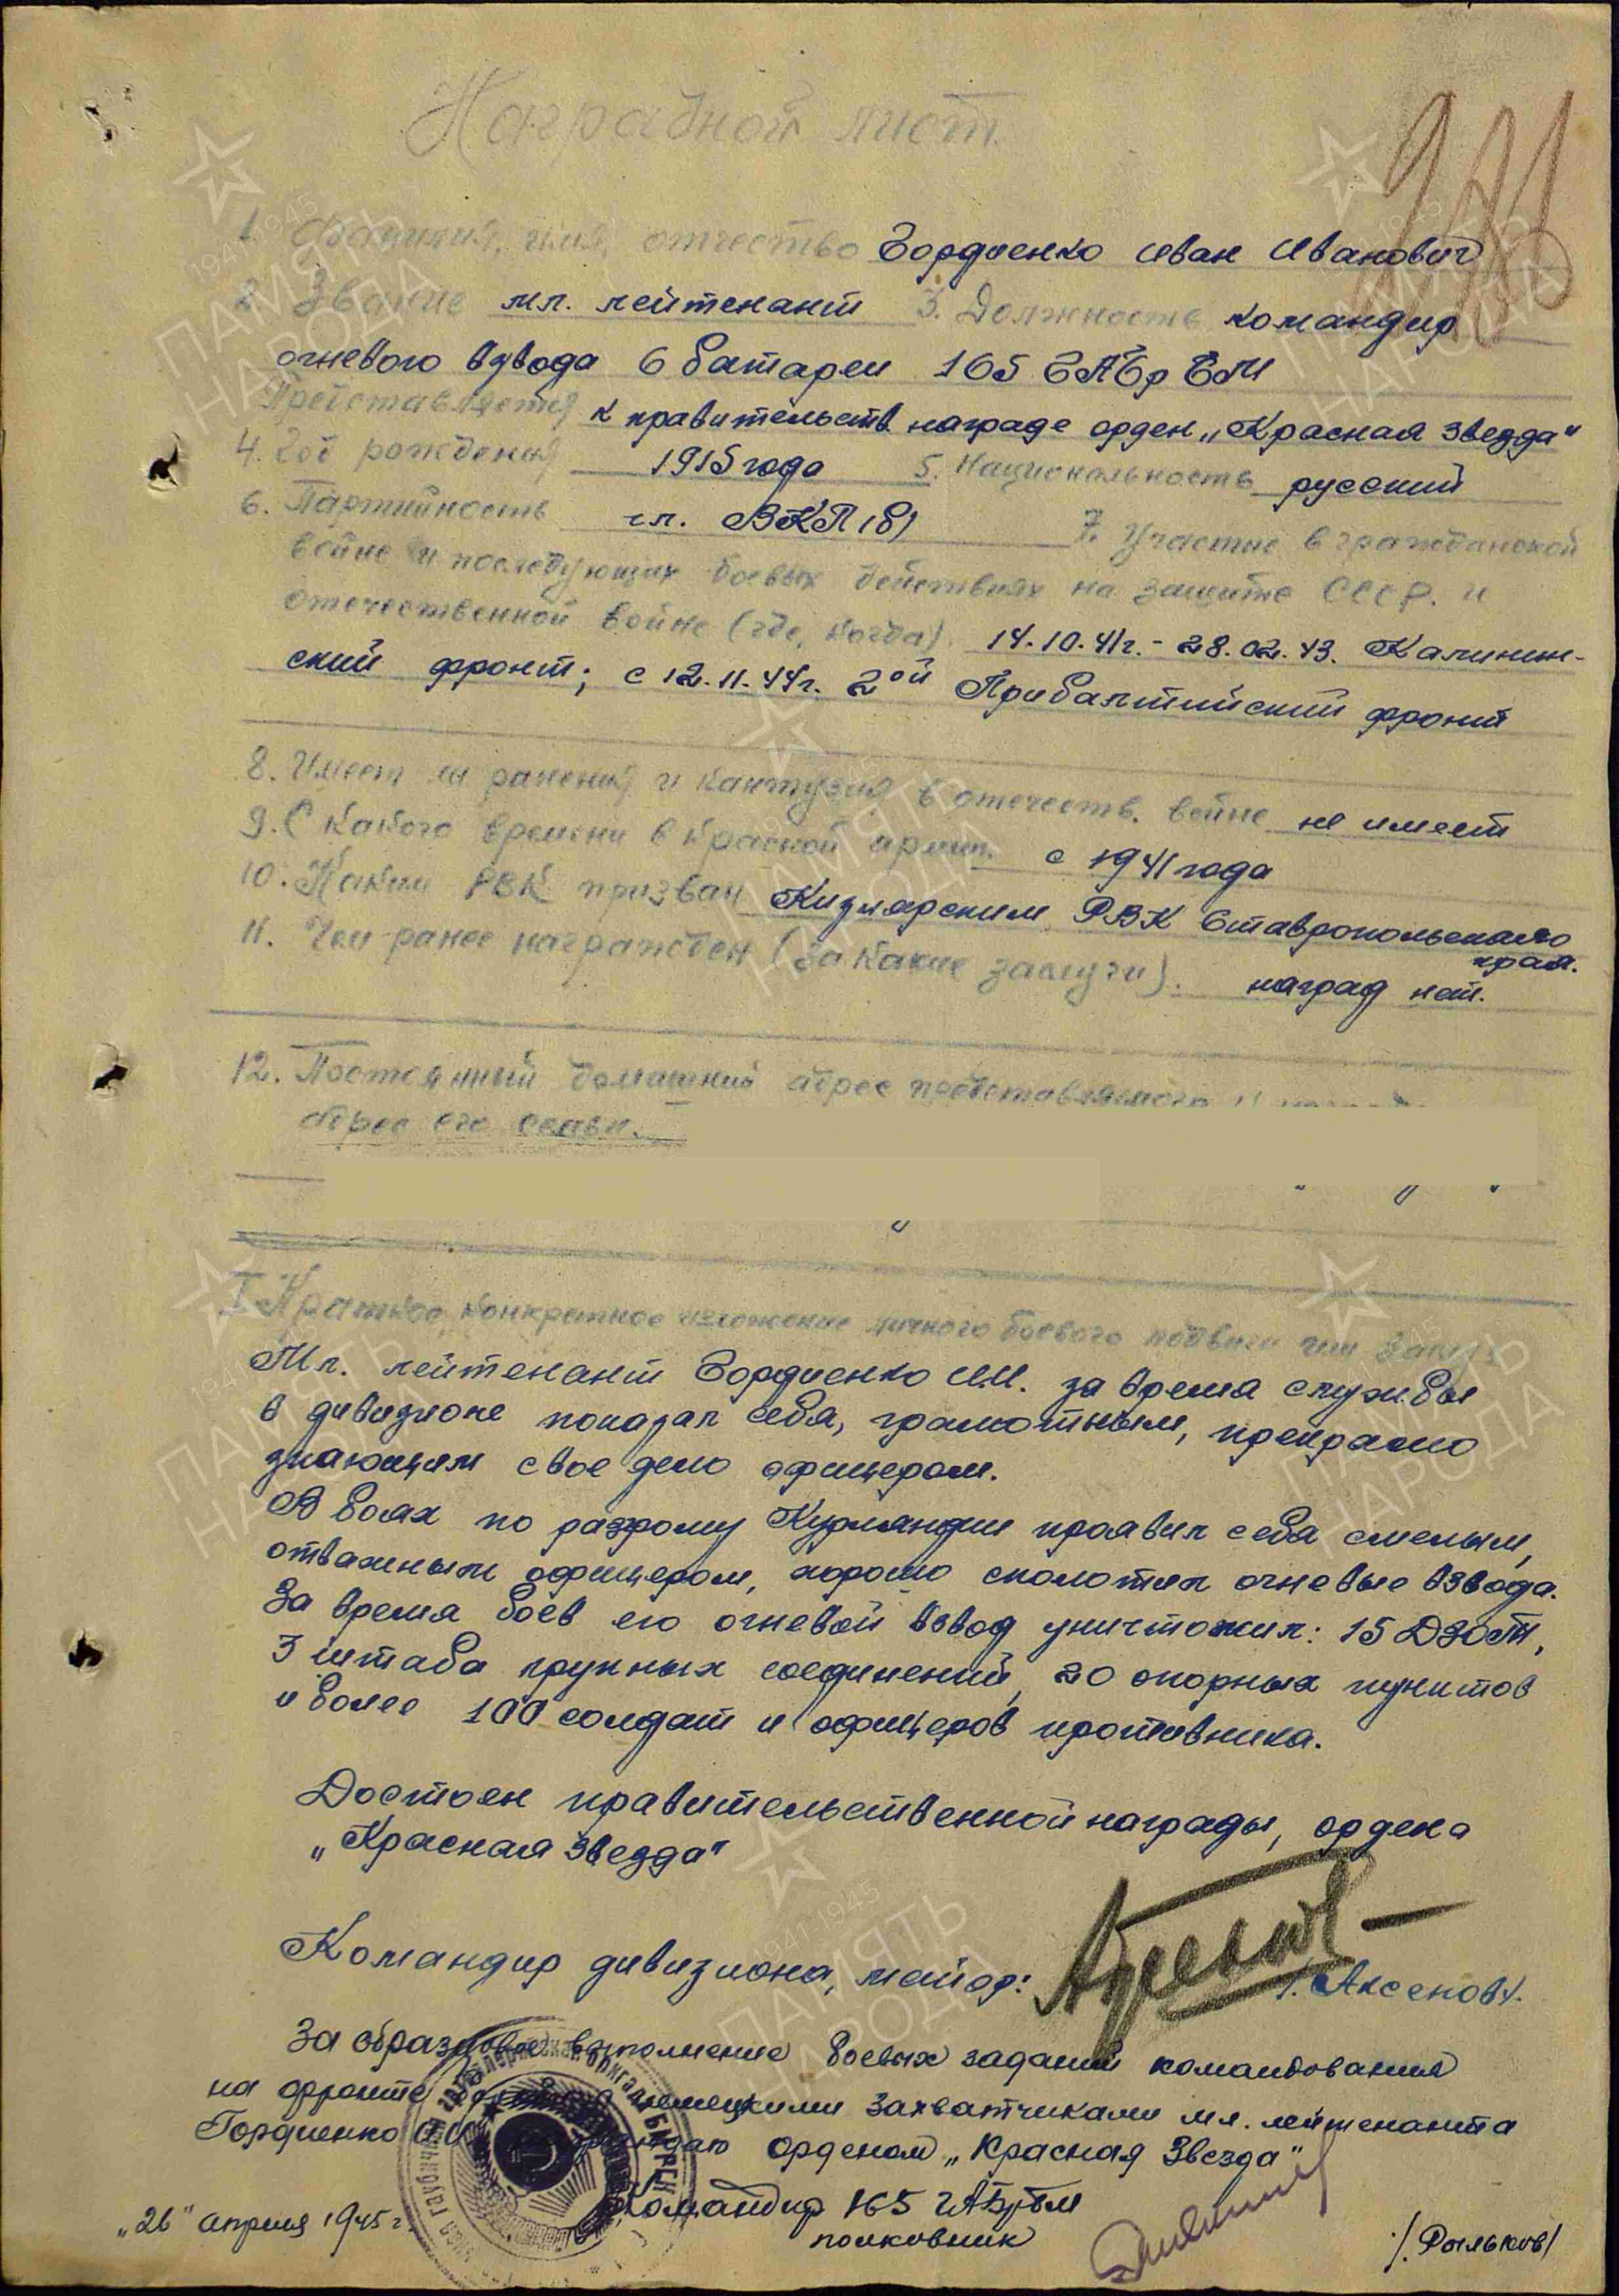 Наградной лист.
1. Фамилия, имя, отчество Гордиенко Иван Иванович
2. Звание мл. лейтенант 3. Должность командир
огневого взвода 6 батареи 165 ГАБр БМ
Представляется к правительств. награде орден „Красная звезда“
4. Год рождения 1915 года 5. Национальность русский
6. Партийность чл. ВКП(б) 7. Участие в гражданской
войне и последующих боевых действиях на защите СССР. и
отечественной войне (где, когда). 14.10.41г. - 28.02.43. Калинин-
ский фронт; с 12.11.44г. 2ой Прибалтийский фронт
8. Имеет ли ранения и контузия в отечеств. войне не имеет
9. С какого времени в красной армии. с 1941 года
10. Каким РВК призван Кизлярским РВК Ставропольского
края.
11. Чем ранее награжден (за какие заслуги). наград нет.
12. Постоянный домашний адрес представляемого
адрес его семьи.
I Краткое, конкретное изложение личного боевого подвига или
Мл. лейтенант Гордиенко И.И. за время службы
в дивизионе показал себя, грамотным, прекрасно
знающим свое дело офицером.
В боях по разгрому Курляндии проявил себя смелым,
отважным офицером, хорошо сколотил огневые взвода.
За время боев его огневой взвод уничтожил: 15 ДЗОТ,
3 штаба крупных соединений, 20 опорных пунктов
и более 100 солдат и офицеров противника.
Достоен правительственной награды, ордена
„Красная звезда“
Командир дивизиона, майор: /. Аксенов/.
За образцовое выполнение боевых заданий командования
на фронте немецкими захватчиками мл. лейтенанта
Гордиенко орденом „Красная Звезда“
Командир 165 ГАБр БМ
полковник
/. Рыльков/
„26“ апреля 1945 г.
ПАМЯТЬ НАРОДА
1941-1945